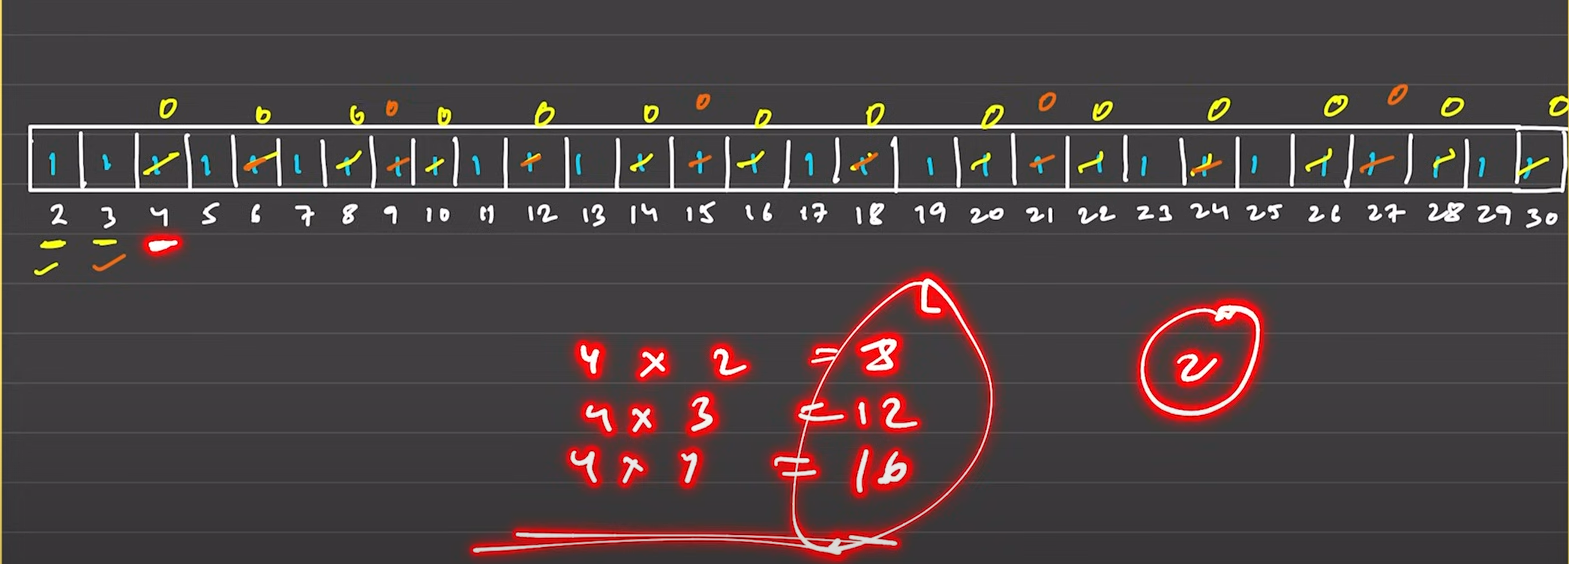 0 0 0 0 0 0 0 0 0 0 0 0 0 0 0 0 0 0
1 1 1 1 1 1 1 1 1 1 1 1 1 1 1 1 1 1 1 1 1 1 1 1 1 1 1 1 1
2 3 4 5 6 7 8 9 10 11 12 13 14 15 16 17 18 19 20 21 22 23 24 25 26 27 28 29 30
4 x 2 = 8
2
4 x 3 = 12
4 x 4 = 16